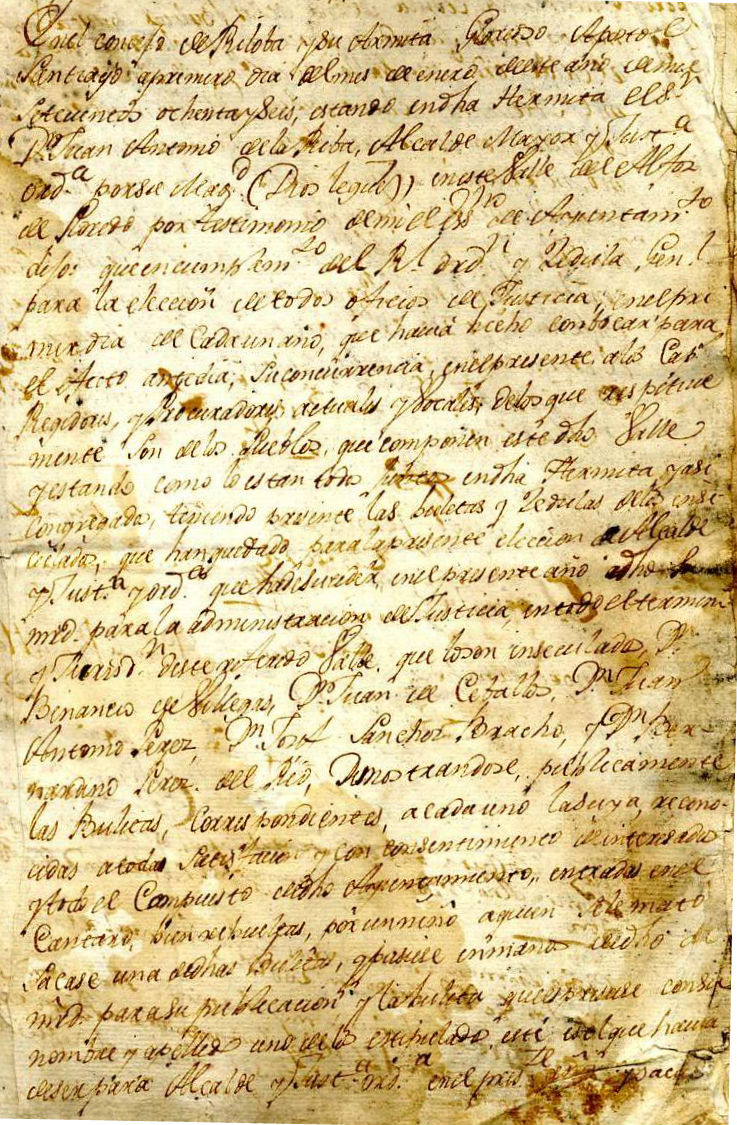 En el concejo de Riloba y su Armita Glorioso Apostol
Santiago aprimero dia del mes de enero de este año de mil
Setecientos ochenta y Seis, estando en dha Hermita el Sr
Dn Juan Antonio de la Riba, Alcalde Mayor y Just.a
Ord.a por su Mag.d (Dios legue)) en este Valle del Alfoz
de Lloredo por testimonio de mi el Ess.no de Ayuntam.to
dijo: que en cumplim.to del R.l ord.n y Zedula Gen.l
para la eleccion de todos oficios de Justicia, en el pri
mer dia de Cada un año, que havia hecho combocar para
el Acto antedia, Su concurrencia, en el presente a los
Regidores, y Procuradores actuales y Vocales, de los que respetive
mente Son de los Pueblos, que componen este dho Valle
y estando como lo estan todos juntos en dha Hermita y asi
Congregados, teniendo presente las boletas y Zedulas de los inse
culados, que han quedado para la presente eleccion de Alcalde
y Just.a y ord.a que ha de suceder en el presente año a dho Sr
mrd. para la administracion de Justicia, en todo el termino
y Jurisd.n de este referido Valle que lo son inseculados, Dn
Benancio de Villegas, Dn Juan de Ceballos, Dn Juan
Antonio Perez, Dn Josef Sanchez Bracho, y Dn Ber-
nardino Perez del Rio, Demostrandose, publicamente
las Buletas, Correspondientes, a cada uno la suya, recono-
cidas a toda Satisfacion y con consentimiento de interesados
y todo el Compuesto de dho Ayuntamiento, entradas en el
Cantaro, bien rebueltas, por un niño a quien se le mandó
Sacase una de dhas Buletas, y pusiese en mano de dho Sr
mrd. para su publicacion y la buleta que expresase con su
nombre y apellido uno de los expresados, este es el que havia
de ser para Alcalde y Just.a ord.a en el pres.te y para